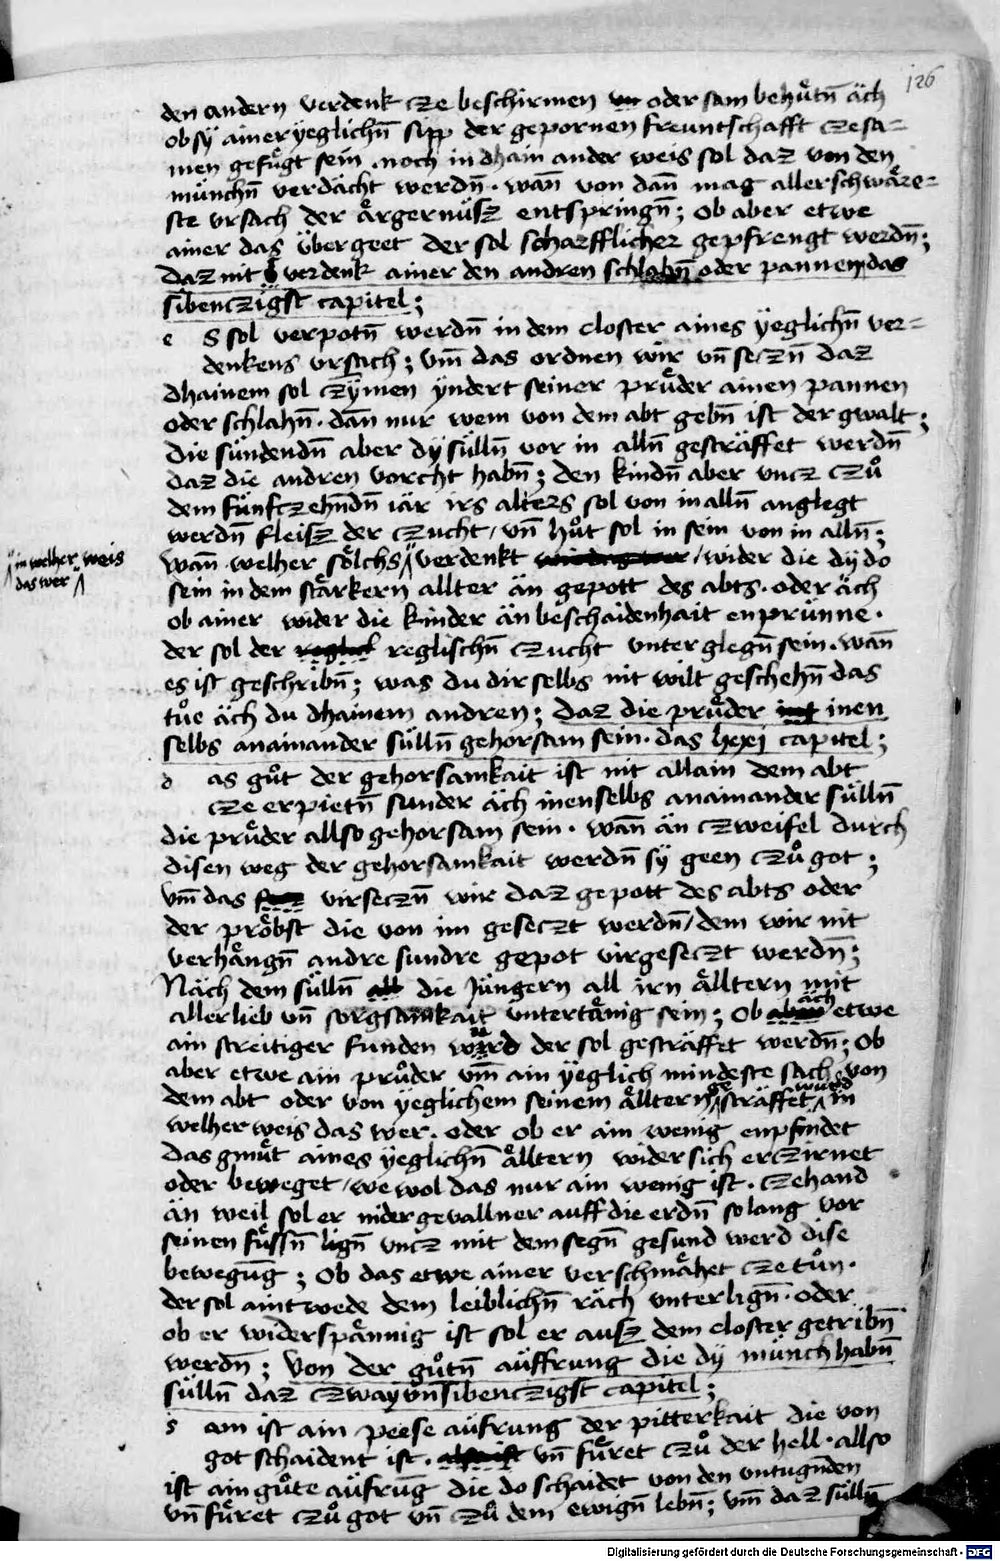 126
den andern verdenk cze beschirmen oder sam behůtn̄ äch
ob sÿ ainer ÿeglichn̄ sipp der gepornen freuntschafft cze sa=
men gefůgt sein . noch in dhain ander weis sol daz von den
münchn̄ verdächt werdn̄ . wan̄ von dan̄ mag aller schwäre=
ste vrsach der ärgernüsz entspringn̄ ; Ob aber etwe
ainer das übergeet der sol scharfflicher gepfrengt werdn̄ ;
Daz nit verdenk ainer den andren schlahn̄ oder pannen das
sibenczigst capitel ;
e S sol verpotn̄ werdn̄ in dem closter aines ÿeglichn̄ ver=
denkens vrsach ; vm̄ das ordnen wir vn̄ seczn̄ daz
dhainem sol czÿmen ÿndert seiner průder ainen pannen
oder schlahn̄ . dan̄ nur wem von dem abt gebn̄ ist der gwalt ;
Die sündendn̄ aber dÿ sülln̄ vor in alln̄ gesträffet werdn̄
daz die andren vorcht habn̄ ; den kindn̄ aber vncz czů
dem fünfczehndn̄ iär irs alters sol von in alln̄ anglegt
werdn̄ fleisz der czucht / vn̄ hůt sol in sein von in alln̄ ;
in welher weis
das wer
wan̄ welher sölchs verdenkt / wider die dÿ do
sein in dem stärkern allter än gepott des abts . oder äch
ob ainer wider die kinder än beschaidenhait enprünne .
der sol der reglischn̄ czucht vnterglegn̄ sein . wan̄
es ist geschribn̄ ; was du dir selbs nit wilt geschehn̄ das
tůe äch du dhainem andren ; daz die průder inen
selbs anainander sülln̄ gehorsam sein . das lxxj capitel ;
d as gůt der gehorsamkait ist nit allain dem abt
cze erpietn̄ sunder äch inenselbs anainander sülln̄
die průder allso gehorsam sein . wan̄ än czweifel durch
disen weg der gehorsamkait werdn̄ sÿ geen czů got ;
vm̄ das virseczn̄ wir daz gepott des abts oder
der pröbst die von im geseczt werdn̄ / dem wir nit
verhängn̄ andre sundre gepot virgeseczt werdn̄ ;
Näch dem sülln̄ die Jüngern all irn älltern mit
aller lieb vn̄ sorgsamkait vntertänig sein ; Ob äch etwe
ain streitiger funden wird der sol gesträffet werdn̄ ; Ob
aber etwe ain průder vm̄ ain ÿeglich mindeste sach von
dem abt oder von ÿeglichem seinem älltern gesträffet wurd in
welher weis das wer . oder ob er ain wenig enpfindet
das gmůt aines ÿeglichn̄ älltern wider sich erczirnet
oder beweget / we wol das nur ain wenig ist . czehand
än weil sol er nidergevallner auff die erdn̄ so lang vor
seinen fůssn̄ lign̄ vncz mit dem segn̄ gesund werd dise
bewegūg ; Ob das etwe ainer verschmähet cze tůn .
der sol aintwede dem leiblichn̄ räch vnterlign̄ . oder
ob er widerspännig ist sol er ausz dem closter getribn̄
werdn̄ ; Von der gůtn̄ aüffrung die dÿ münch habn̄
sülln̄ daz czwaÿ vn̄ sibenczigst capitel ;
s am ist ain peese aüfrung der pitterkait die von
got schaident ist . vn̄ fůret czů der hell . allso
ist ain gůte aüfrūg die do schaidet von den vntugnden
vn̄ fůret czů got vn̄ czů dem ewign̄ lebn̄ ; vm̄ daz sülln̄
Digitalisierung gefördert durch die Deutsche Forschungsgemeinschaft - DFG